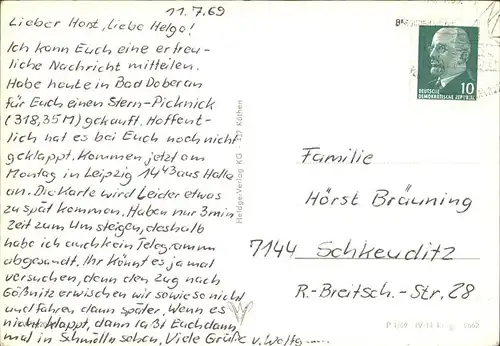 11.7.69
Lieber Horst, liebe Helga!
Ich kann Euch eine erfreu-
liche Nachricht mitteilen.
Habe heute in Bad Doberan
für Euch einen Stern-Picknick
(318,35M) gekauft. Hoffent-
lich hat es bei Euch noch nicht
geklappt. Kommen jetzt am
Montag in Leipzig 14⁴³ aus Halle
an. Die Karte wird leider etwas
zu spät kommen. Haben nur 3 min
Zeit zum Umsteigen, deshalb
habe ich auch kein Telegramm
abgesandt. Ihr könnt es ja mal
versuchen, denn den Zug nach
Gößnitz erwischen wir sowieso nicht
und fahren dann später. Wenn es
nicht klappt, dann laßt Euch dann
mal in Schmölln sehen. Viele Grüße v. Wolfg
Heldge-Verlag KG - 437 Köthen
10
DEUTSCHE
DEMOKRATISCHE REPUBLIK
Familie
Horst Bräuning
7144 Schkeuditz
R.-Breitsch.-Str. 28